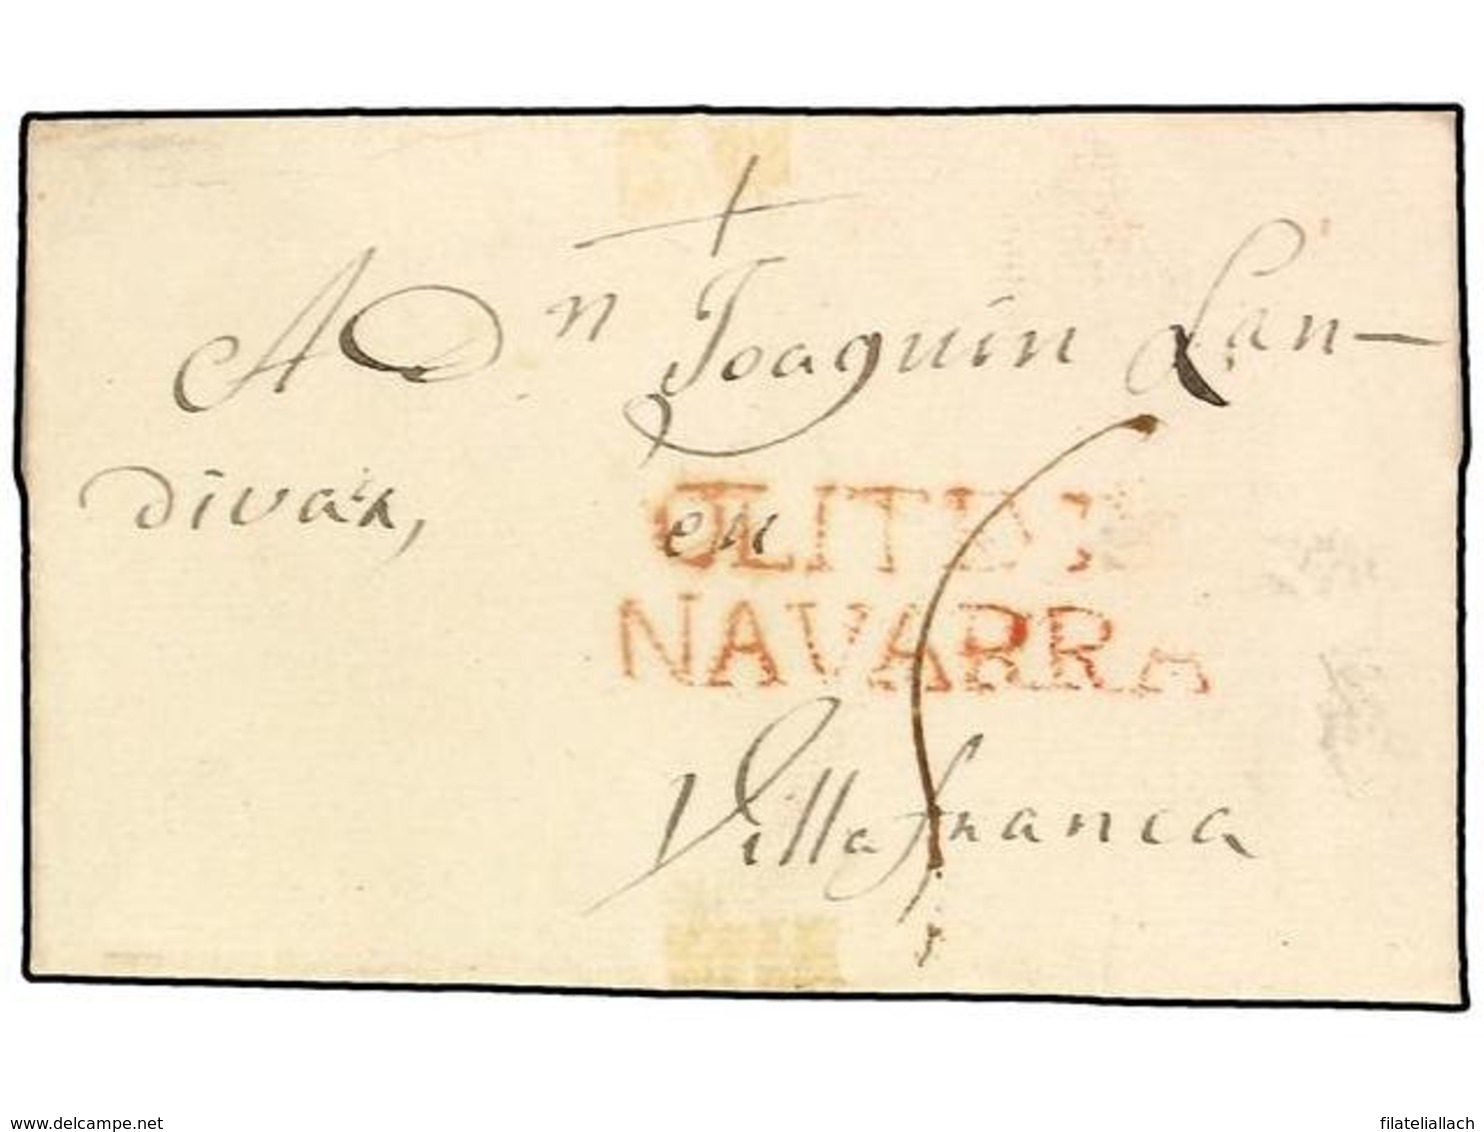 A Dn Joaquin Lan-
divar, en
OLITE
NAVARRA
Villafranca
www.delcampe.net
filateliallach